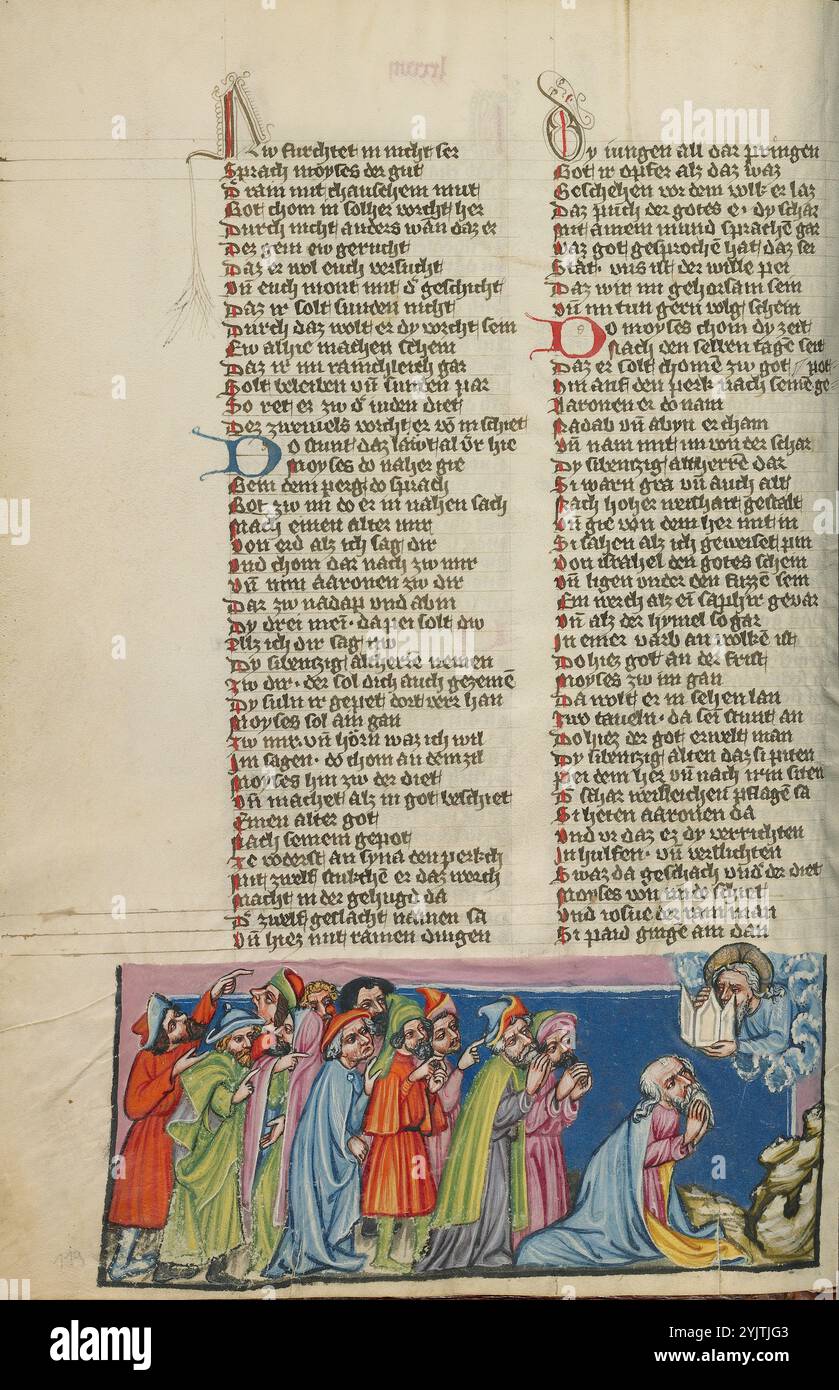 Nw furchtet in nicht ser
Sprach moyses der gut
D ram mit chauschem mut
Got chom in solher vorcht her
Durch nicht anders wan daz er
Der gern ew gerucht
Daz er wol euch versucht
Vn̄ euch mont mit d' geschicht
Daz ir solt sunden nicht
Durch daz wolt er dy vorcht sein
Ew alhie machen schein
Daz ir im rainchleich gar
Solt beleiben vn̄ sunden par
So ret er zw d' iuden diet
Der zweiuels vorcht er vō in schiet
Do stunt daz lawt al vͤr hie
Moyses do naher gie
Gein dem perg do sprach
Got zw im do er in nahen sach
Mach einen alter mir
Von erd alz ich sag dir
Vnd chom dar nach zw mir
Vn̄ nim aaronen zw dir
Dar zw nadap vnd abiu
Dy drei mein da pei solt dw
Alz ich dir sag nw
Dy sibenzig altherrē nemen
Zw dir der sol dich auch gezemē
Dy suln ir gepet dort verr han
Moyses sol ain gan
Zw mir vn̄ hörn waz ich wil
Im sagen do chom an dem zil
Moyses hin zw der diet
Vn̄ machet alz in got beschiet
Einen alter got
Nach seinem gepot
Ze voderst an syna den perkch
Mit zwelf stukchē er daz werch
Macht in der gehugd da
D' zwelf geslacht namen sa
Vn̄ hiez mit ramen dingen
Dy iungen all dar pringen
Got ir opfer alz daz waz
Geschehen vor dem volk er laz
Daz puch der gotes e dy schar
Mit ainem mund sprachē gar
Waz got gesprochē hat daz sei
Stat vns ist der wille pei
Daz wir im gehorsam sein
Vn̄ im tun gern volg schein
Do moyses chom dy zeit
Nach den selben tagē seit
Daz er solt chomē zw got
Hin auf den perk nach seinē ge-pot
Aaronen er do nam
Nadab vn̄ abyu er cham
Vn̄ nam mit im von der schar
Dy sibenzig altherrē dar
Si warn gra vn̄ auch alt
Nach hoher weishait gestalt
Vn̄ gie von dem her mit in
Si sahen alz ich geweiset pin
Von israhel den gotes schein
Vn̄ ligen vnder den fuzzē sein
Ein werch alz ein saphir gevar
Vn̄ alz der hymel so gar
In einer varb an wolkē ist
Do hiez got an der frist
Moyses zw im gan
Da wolt er in sehen lan
Zwo taueln da sein stunt an
Do hiez der got erwelt man
Dy sibenzig alten daz si piten
Pei dem her vn̄ nach irm siten
D' schar weisleichen pflagē sa
Si heten aaronen da
Vnd vr daz ez dy verrichten
In hulfen vn̄ verslichten
Swaz da geschach vnd' der diet
Moyses von in do schiet
Vnd iosue der rain man
Si paid ginge ain dan
119
alamy
Image ID: 2YJTJG3
www.alamy.com